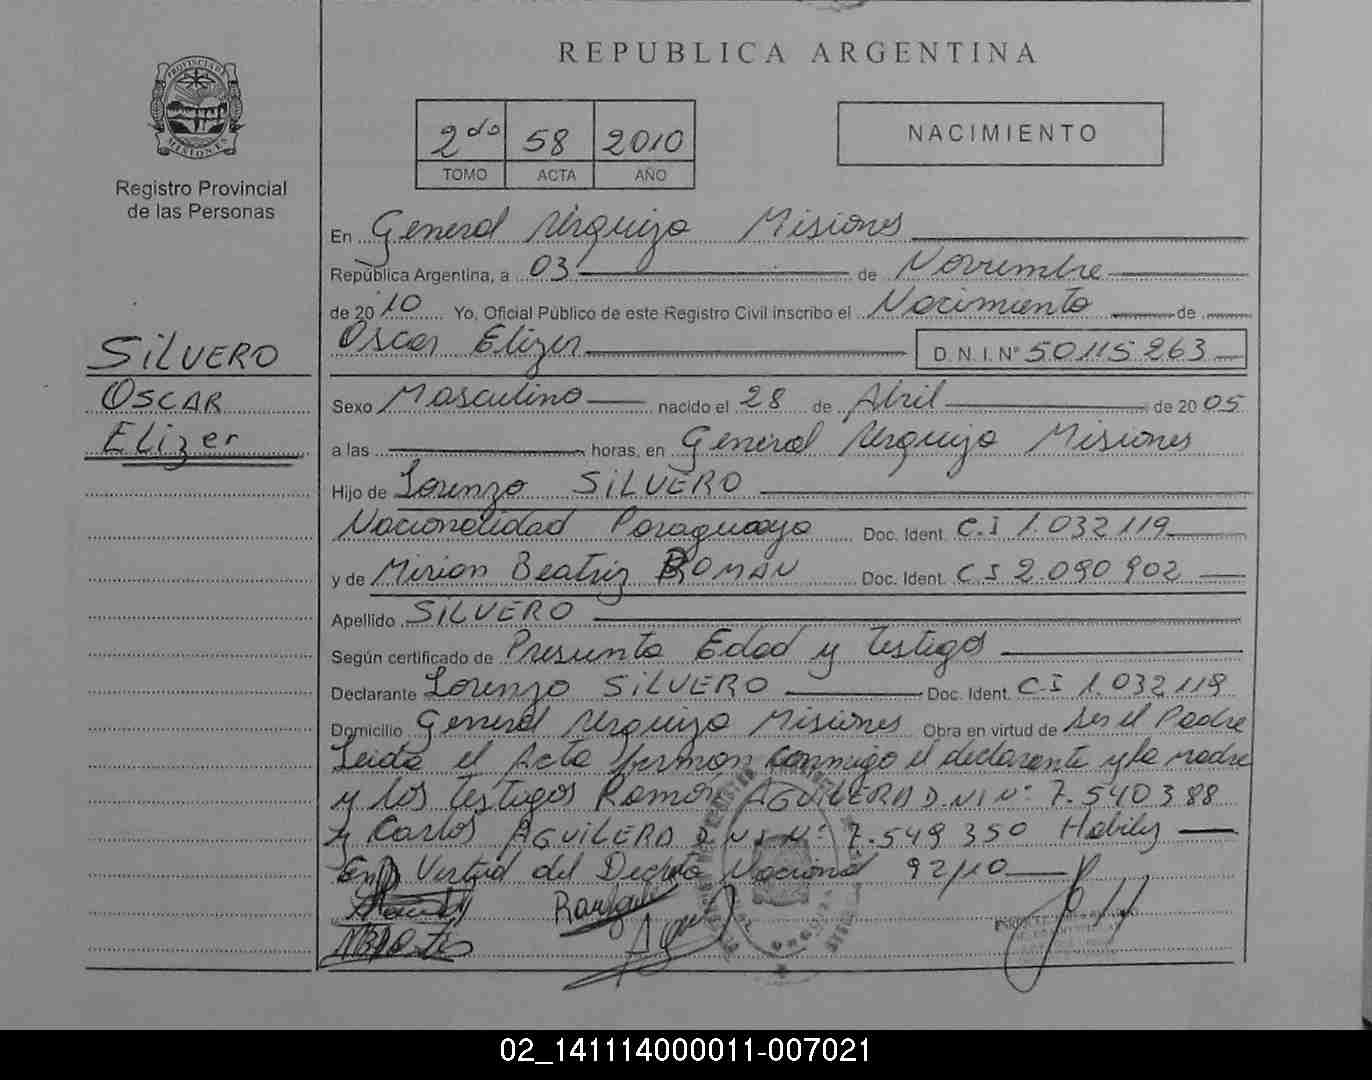 REPUBLICA ARGENTINA
PROVINCIA DE
MISIONES
Registro Provincial
de las Personas
2do 58 2010
TOMO ACTA AÑO
NACIMIENTO
En General Urquiza Misiones
República Argentina, a 03 de Noviembre
de 2010 Yo, Oficial Público de este Registro Civil inscribo el Nacimiento de
Oscar Elizer D.N.I.Nº 50115263
SILVERO
OSCAR
Elizer
Sexo Masculino nacido el 28 de Abril de 2005
a las horas, en General Urquiza Misiones
Hijo de Lorenzo SILVERO
Nacionalidad Paraguayo Doc. Ident. C.I 1.032119
y de Mirian Beatriz ROMAN Doc. Ident. C I 2.090902
Apellido SILVERO
Según certificado de Presunta Edad y Testigos
Declarante Lorenzo SILVERO Doc. Ident. C.I 1.032119
Domicilio General Urquiza Misiones Obra en virtud de ser el Padre
Leida el Acta firman conmigo el declarante y la madre
y los testigos Ramón AGUILERA D.N.I Nº: 7.540388
y Carlos AGUILERA D.N.I Nº: 7.549350 Habiles
En Virtud del Decreto Nacional 92/10
02_141114000011-007021